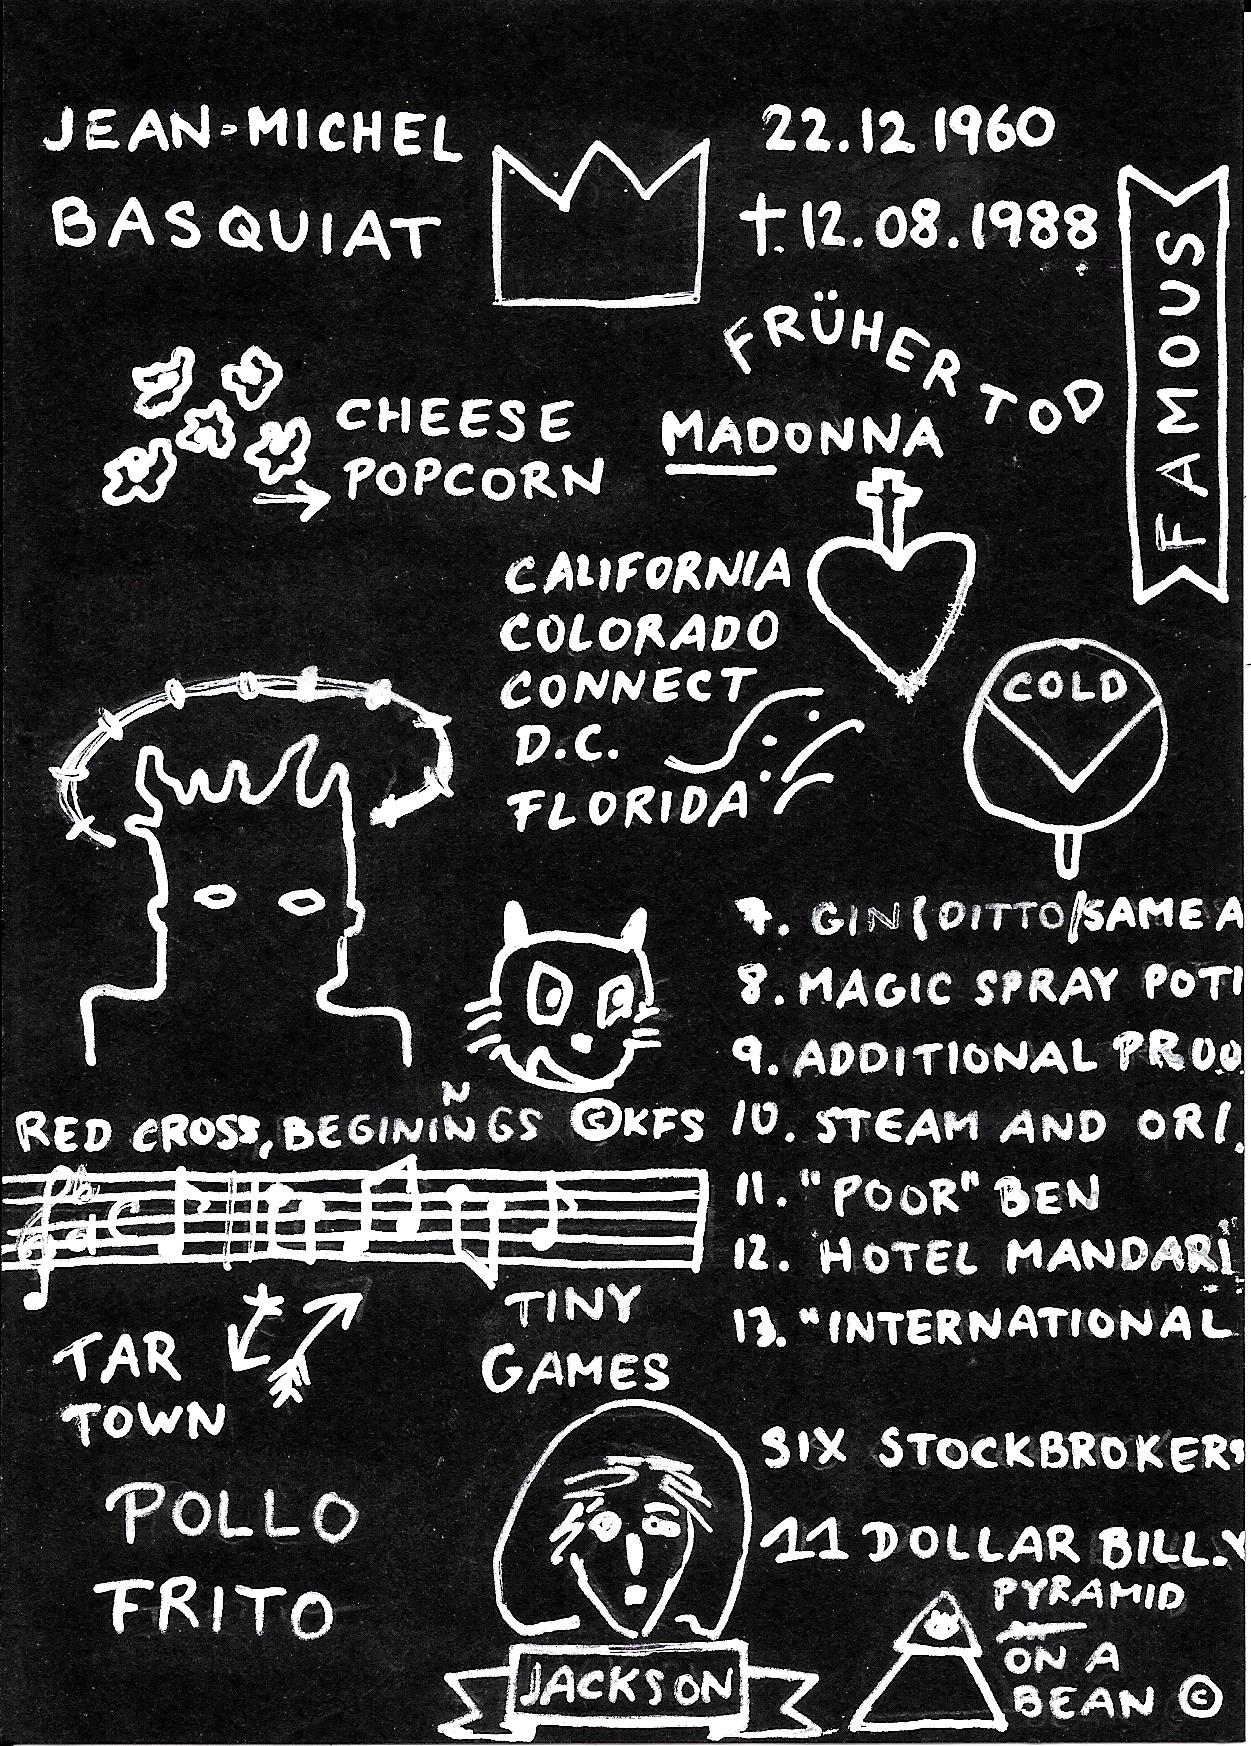 JEAN-MICHEL
BASQUIAT
22.12 1960
†.12.08.1988
FAMOUS
FRÜHER TOD
CHEESE
POPCORN
MADONNA
CALIFORNIA
COLORADO
CONNECT
D.C.
FLORIDA
COLD
7. GIN (DITTO/SAME A
8. MAGIC SPRAY POTI
9. ADDITIONAL PROO
10. STEAM AND ORI.
11. "POOR" BEN
12. "HOTEL MANDARI
13. "INTERNATIONAL
N
RED CROSS, BEGINIÑGS ©KFS
TAR
TOWN
TINY
GAMES
POLLO
FRITO
JACKSON
SIX STOCKBROKERS
11 DOLLAR BILL.Y
PYRAMID
ON A
BEAN ©